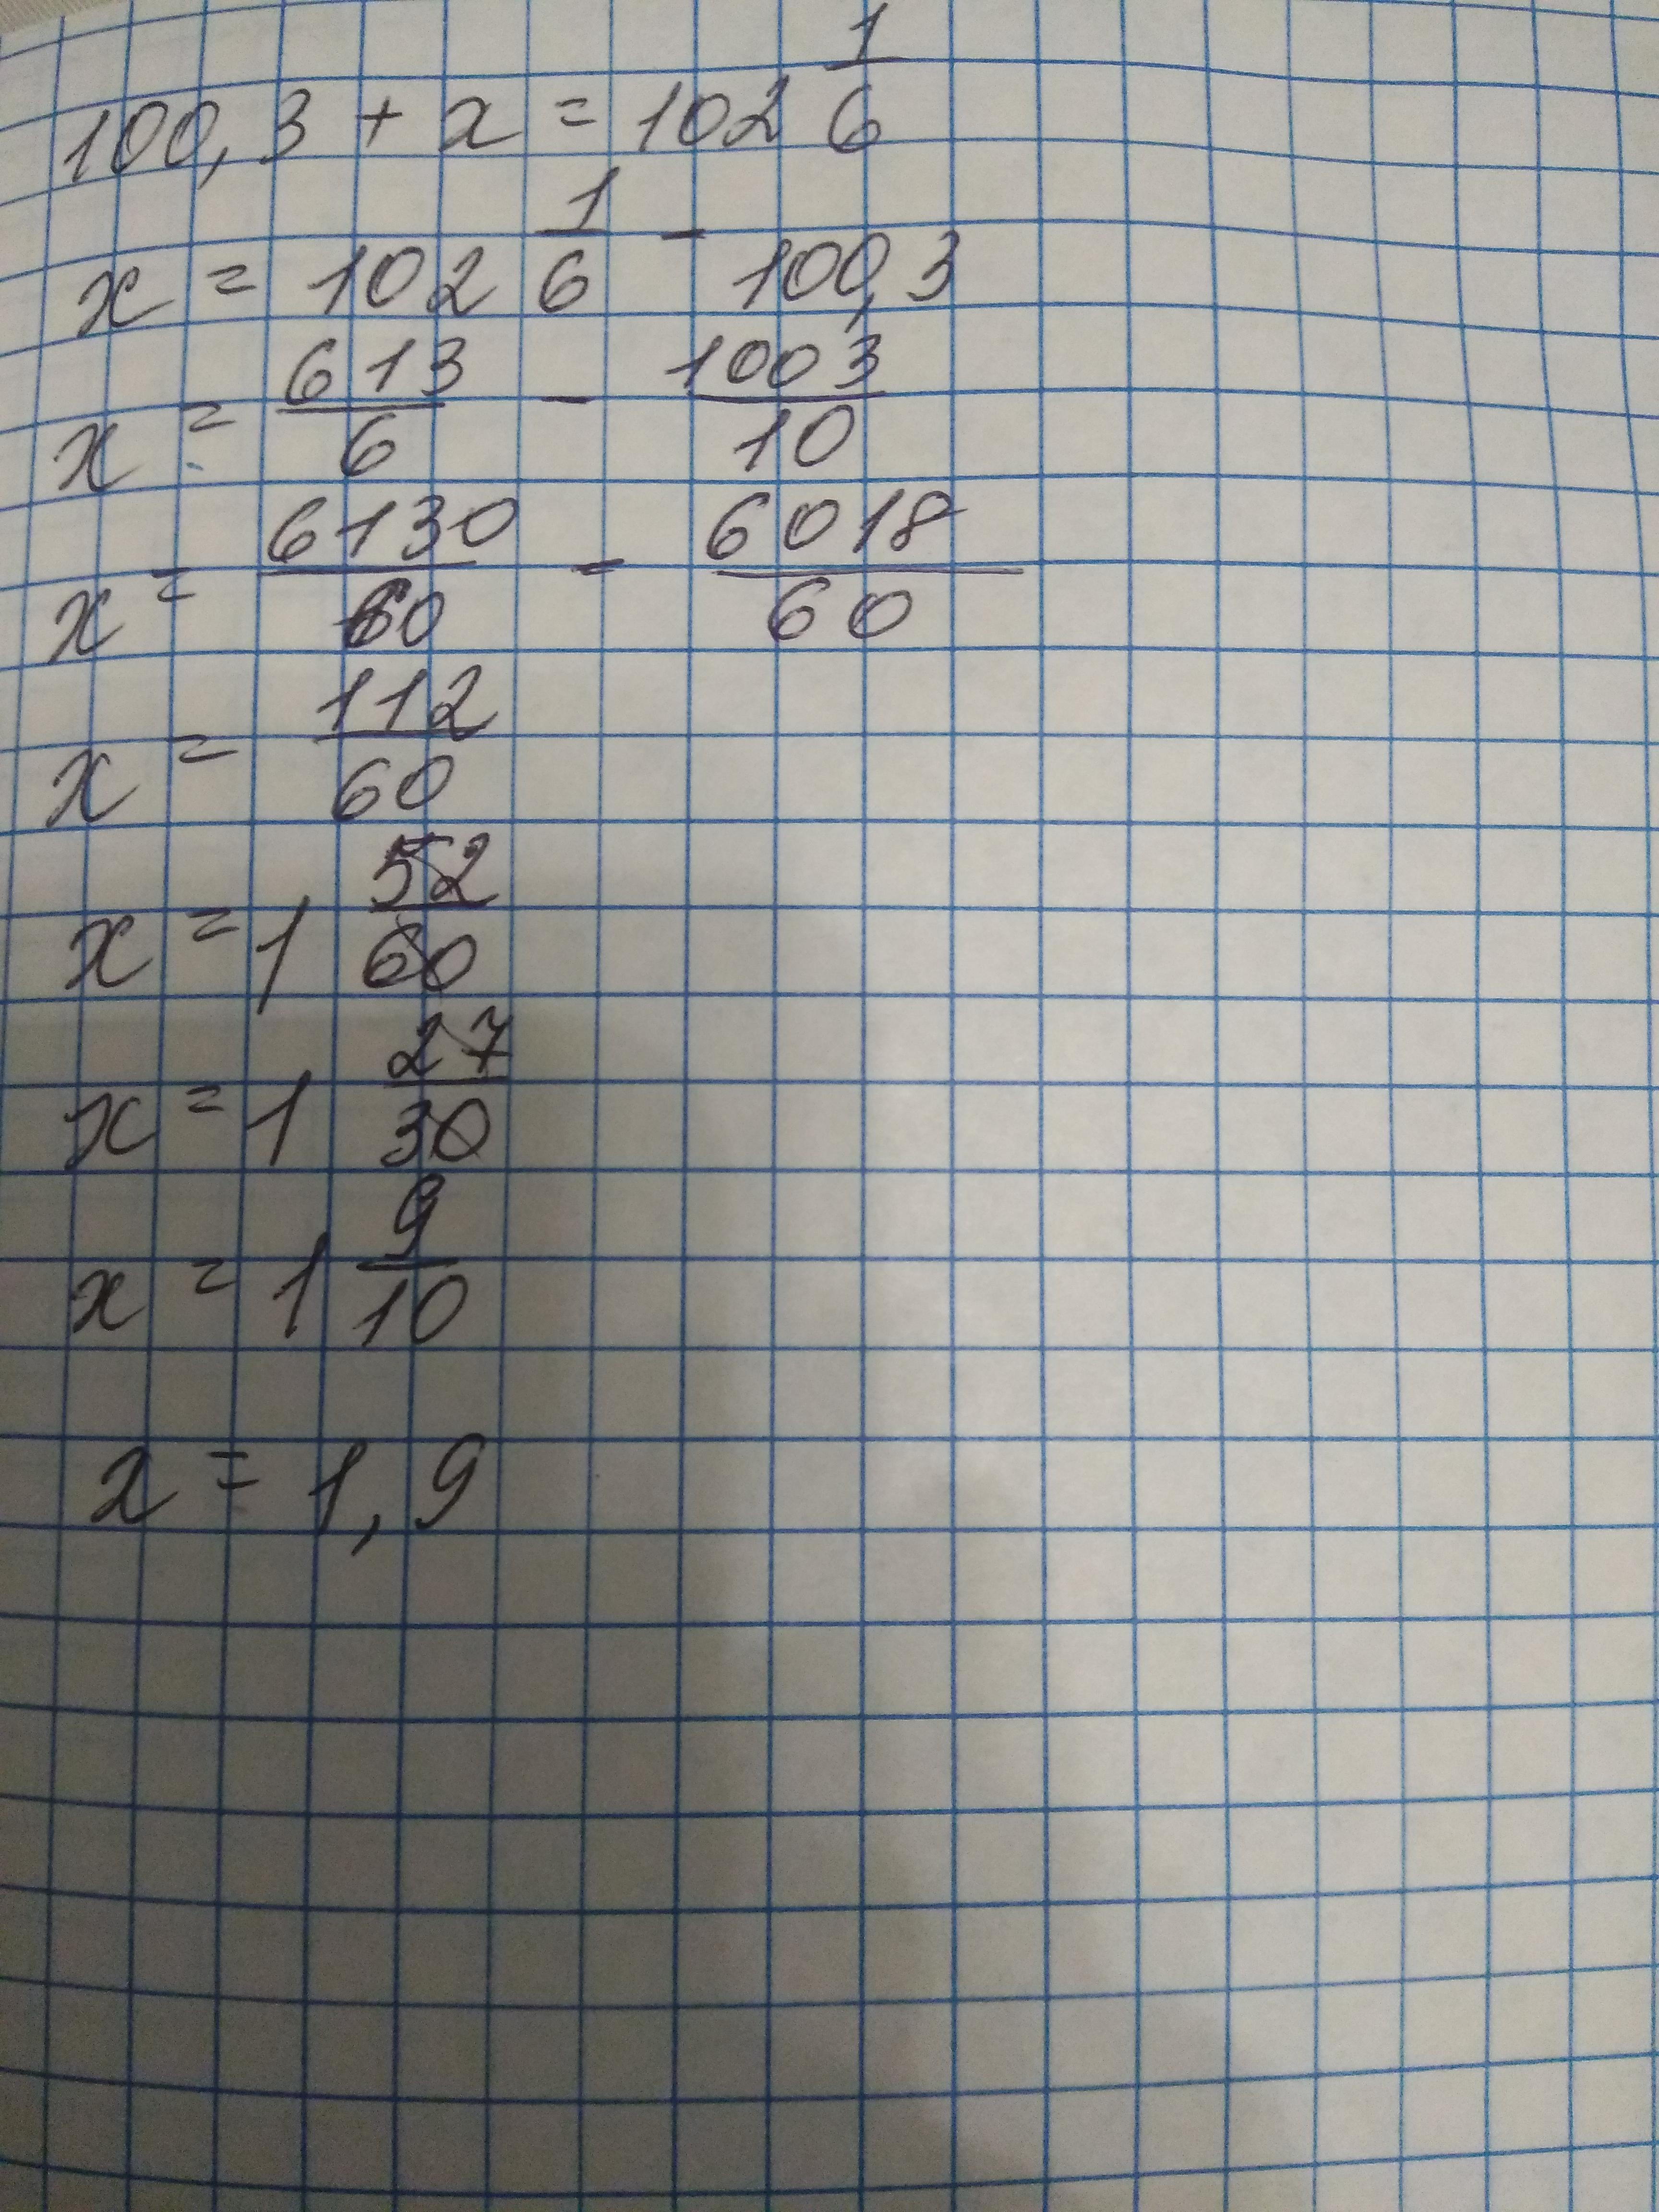 100,3 + x = 102 1/6
x = 102 1/6 - 100,3
x = 613/6 - 1003/10
x = 6130/60 - 6018/60
x = 112/60
x = 1 52/60
x = 1 27/30
x = 1 9/10
x = 1,9